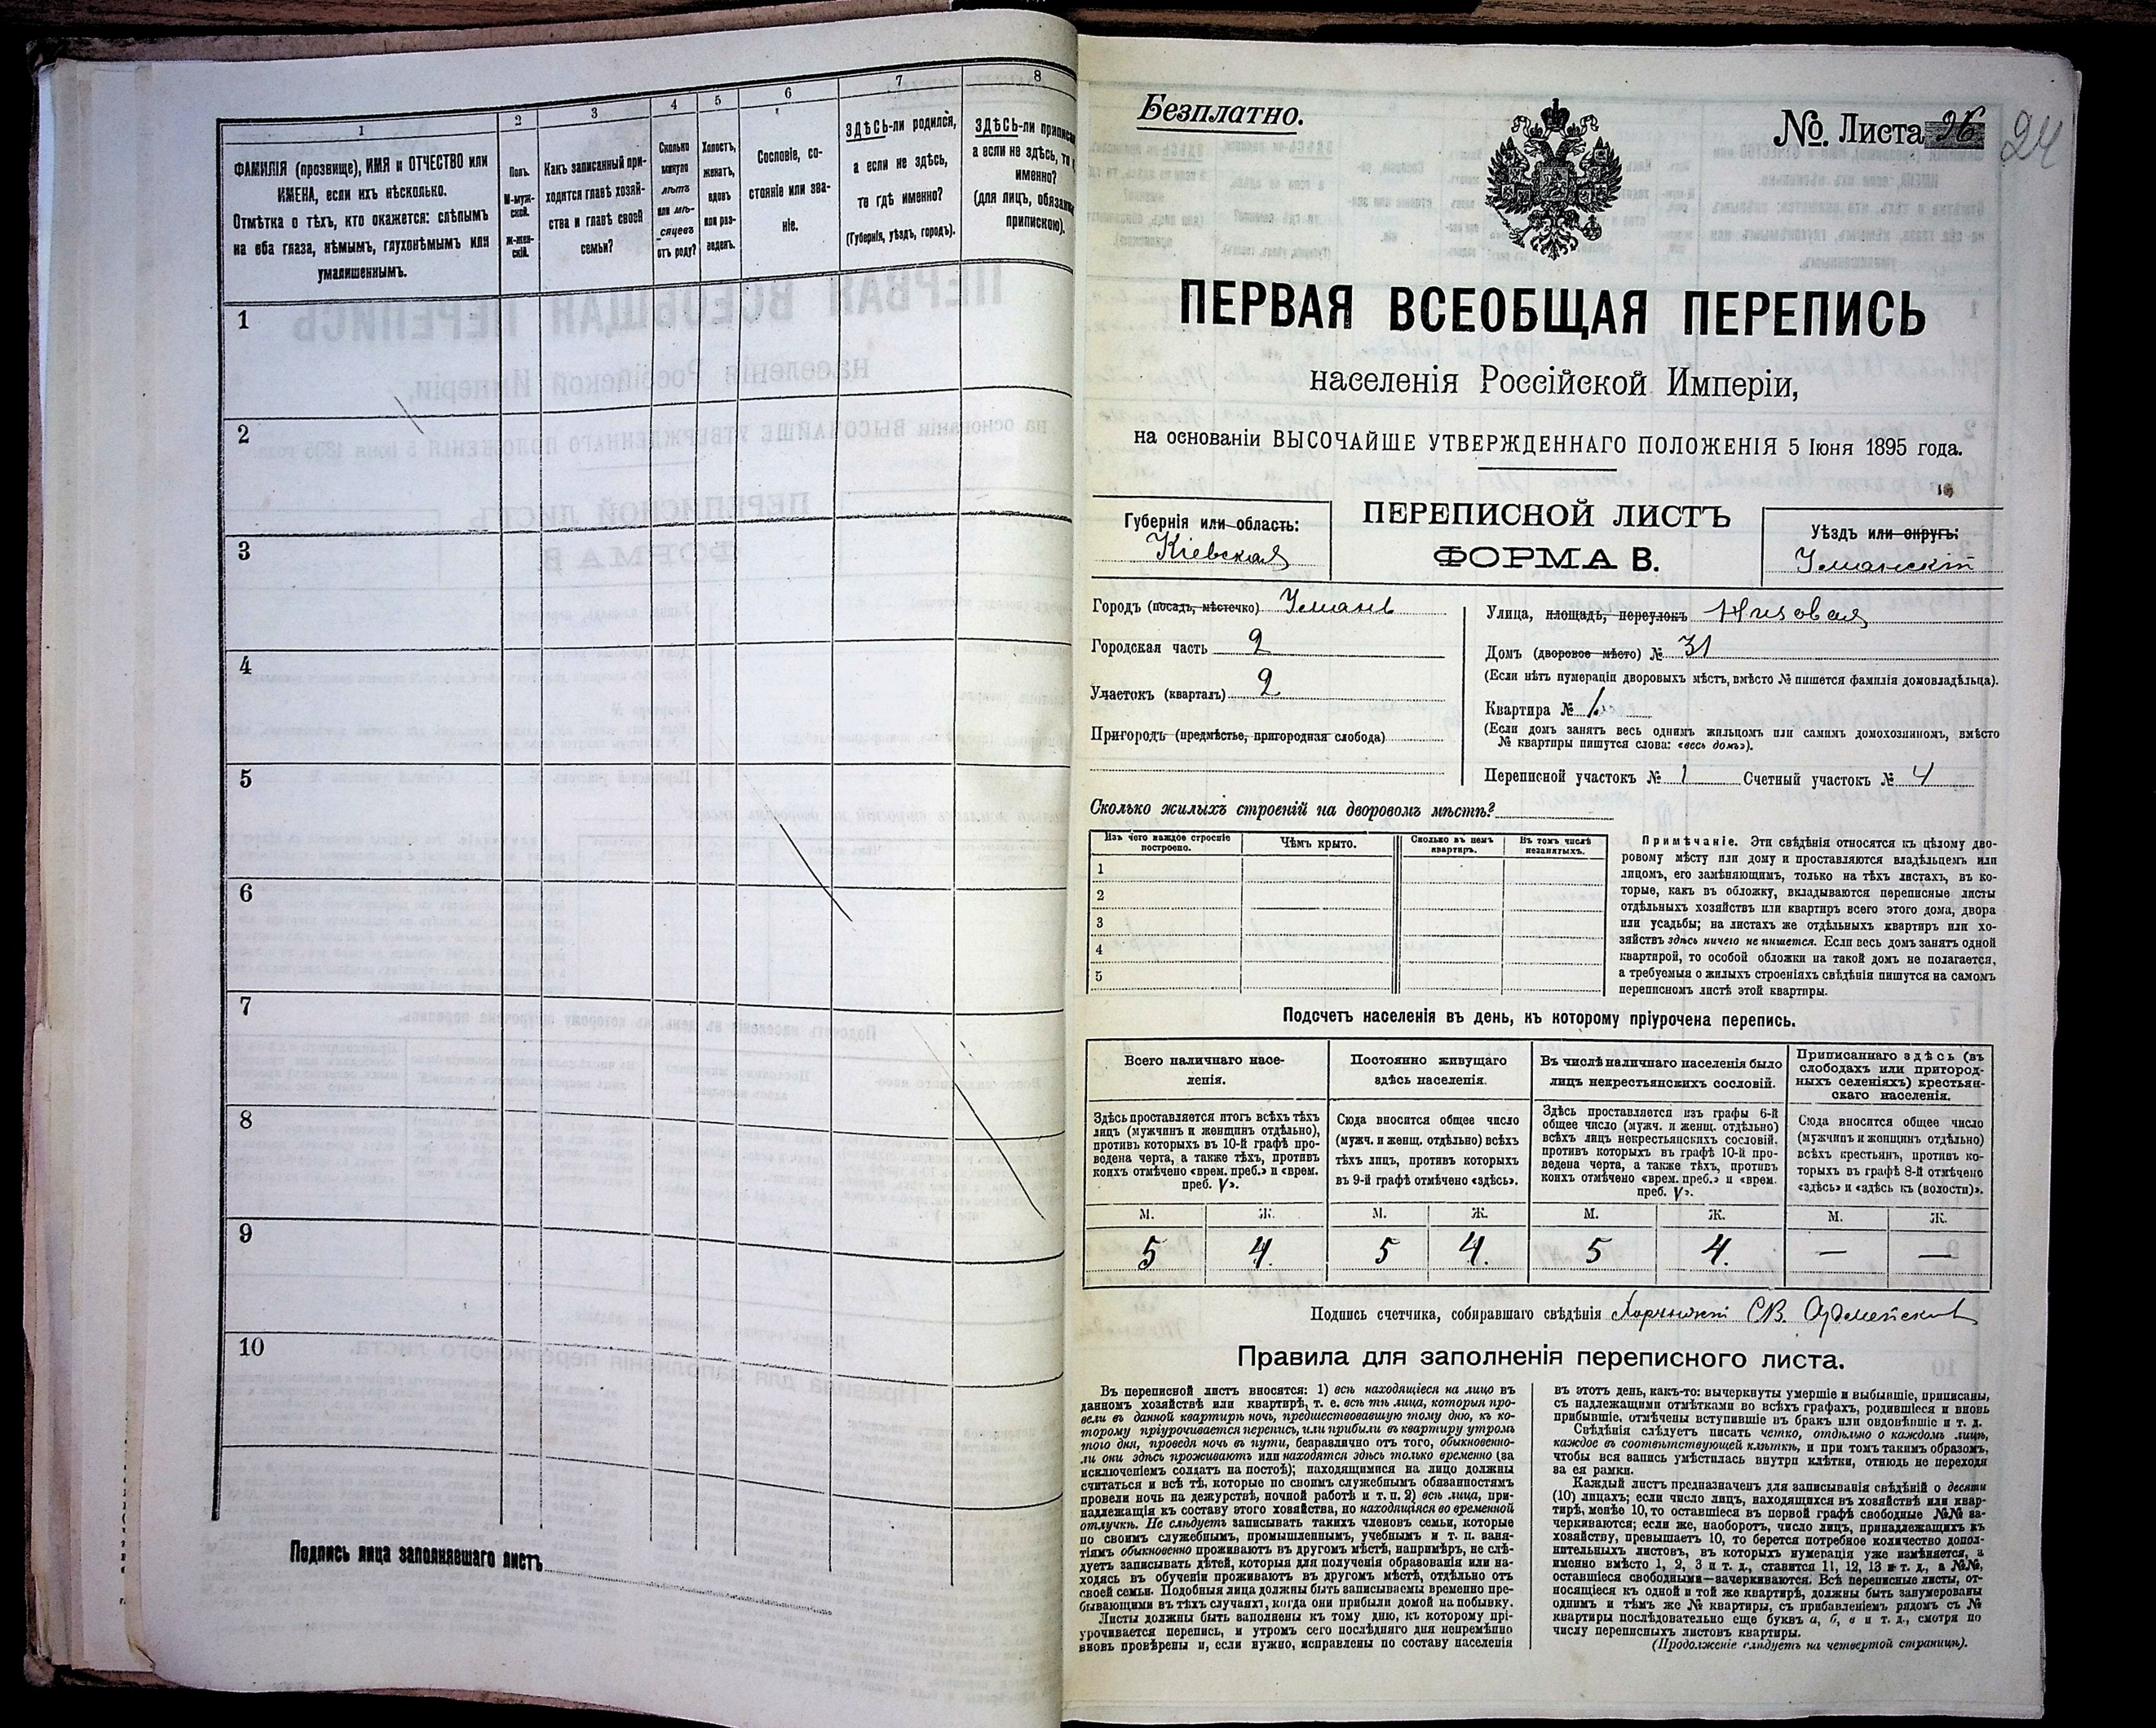 1
2
3
4
5
6
7
8
ФАМИЛІЯ (прозвище), ИМЯ и ОТЧЕСТВО или
ИМЕНА, если ихъ нѣсколько.
Отмѣтка о тѣхъ, кто окажется: слѣпымъ
на оба глаза, нѣмымъ, глухонѣмымъ или
умалишеннымъ.
Полъ.
М-муж-
ской.
Ж-жен-
скій.
Какъ записанный при-
ходится главѣ хозяй-
ства и главѣ своей
семьи?
Сколько
минуло
лѣтъ
или мѣ-
сяцевъ
отъ роду?
Холостъ,
женатъ,
вдовъ
или раз-
веденъ.
Сословіе, со-
стояніе или зва-
ніе.
ЗДѢСЬ-ли родился,
а если не здѣсь,
то гдѣ именно?
(Губернія, уѣздъ, городъ).
ЗДѢСЬ-ли
а если не здѣсь,
именно?
(для лицъ,
припискою).
1
2
3
4
5
6
7
8
9
10
Подпись лица заполнявшаго листъ
Безплатно.
№. Листа 26
24
ПЕРВАЯ ВСЕОБЩАЯ ПЕРЕПИСЬ
населенія Россійской Имперіи,
на основаніи ВЫСОЧАЙШЕ УТВЕРЖДЕННАГО ПОЛОЖЕНІЯ 5 Іюня 1895 года.
Губернія или область:
Кіевская
ПЕРЕПИСНОЙ ЛИСТЪ
ФОРМА В.
Уѣздъ или округъ:
Уманскій
Городъ (посадъ, мѣстечко) Умань
Городская часть 2
Участокъ (кварталъ) 2
Пригородъ (предмѣстье, пригородная слобода)
Улица, площадь, переулокъ Низовая
Домъ (дворовое мѣсто) № 31
(Если нѣтъ нумераціи дворовыхъ мѣстъ, вмѣсто № пишется фамилія домовладѣльца).
Квартира №
(Если домъ занятъ весь однимъ жильцомъ или самимъ домохозяиномъ, вмѣсто
№ квартиры пишутся слова: «весь домъ»).
Переписной участокъ № 1 Счетный участокъ № 4
Сколько жилыхъ строеній на дворовомъ мѣстѣ?
Изъ чего каждое строеніе
построено.
Чѣмъ крыто.
Сколько въ немъ
квартиръ.
Въ томъ числѣ
незанятыхъ.
1
2
3
4
5
Примѣчаніе. Эти свѣдѣнія относятся къ цѣлому дво-
ровому мѣсту или дому и проставляются владѣльцемъ или
лицомъ, его замѣняющимъ, только на тѣхъ листахъ, въ ко-
торые, какъ въ обложку, вкладываются переписные листы
отдѣльныхъ хозяйствъ или квартиръ всего этого дома, двора
или усадьбы; на листахъ же отдѣльныхъ квартиръ или хо-
зяйствъ здѣсь ничего не пишется. Если весь домъ занятъ одной
квартирой, то особой обложки на такой домъ не полагается,
а требуемыя о жилыхъ строеніяхъ свѣдѣнія пишутся на самомъ
переписномъ листѣ этой квартиры.
Подсчетъ населенія въ день, къ которому пріурочена перепись.
Всего наличнаго насе-
ленія.
Постоянно живущаго
здѣсь населенія.
Въ числѣ наличнаго населенія было
лицъ некрестьянскихъ сословій.
Приписаннаго здѣсь (въ
слободахъ или пригород-
ныхъ селеніяхъ) крестьян-
скаго населенія.
Здѣсь проставляется итогъ всѣхъ тѣхъ
лицъ (мужчинъ и женщинъ отдѣльно),
противъ которыхъ въ 10-й графѣ про-
ведена черта, а также тѣхъ, противъ
коихъ отмѣчено «врем. преб.» и «врем.
преб. V».
Сюда вносится общее число
(мужч. и женщ. отдѣльно) всѣхъ
тѣхъ лицъ, противъ которыхъ
въ 9-й графѣ отмѣчено «здѣсь».
Здѣсь проставляется изъ графы 6-й
общее число (мужч. и женщ. отдѣльно)
всѣхъ лицъ некрестьянскихъ сословій.
противъ которыхъ въ графѣ 10-й про-
ведена черта, а также тѣхъ, противъ
коихъ отмѣчено «врем. преб.» и «врем.
преб. V».
Сюда вносится общее число
(мужчинъ и женщинъ отдѣльно)
всѣхъ крестьянъ, противъ ко-
торыхъ въ графѣ 8-й отмѣчено
«здѣсь» и «здѣсь къ (волости)».
М. Ж. М. Ж. М. Ж. М. Ж.
5 4. 5 4. 5 4. — —
Подпись счетчика, собиравшаго свѣдѣнія
Правила для заполненія переписного листа.
Въ переписной листъ вносятся: 1) всѣ находящіеся на лицо въ
данномъ хозяйствѣ или квартирѣ, т. е. всѣ тѣ лица, которыя про-
вели въ данной квартирѣ ночь, предшествовавшую тому дню, къ ко-
торому пріурочивается перепись, или прибыли въ квартиру утромъ
того дня, проведя ночь въ пути, безразлично отъ того, обыкновенно-
ли они здѣсь проживаютъ или находятся здѣсь только временно (за
исключеніемъ солдатъ на постоѣ); находящимися на лицо должны
считаться и всѣ тѣ, которые по своимъ служебнымъ обязанностямъ
провели ночь на дежурствѣ, ночной работѣ и т. п. 2) всѣ лица, при-
надлежащія къ составу этого хозяйства, но находящіяся во временной
отлучкѣ. Не слѣдуетъ записывать такихъ членовъ семьи, которые
по своимъ служебнымъ, промышленнымъ, учебнымъ и т. п. заня-
тіямъ обыкновенно проживаютъ въ другомъ мѣстѣ, напримѣръ, не слѣ-
дуетъ записывать дѣтей, которыя для полученія образованія или на-
ходясь въ обученіи проживаютъ въ другомъ мѣстѣ, отдѣльно отъ
своей семьи. Подобныя лица должны быть записываемы временно пре-
бывающими въ тѣхъ случаяхъ, когда они прибыли домой на побывку.
Листы должны быть заполнены къ тому дню, къ которому прі-
урочивается перепись, и утромъ сего послѣдняго дня непремѣнно
вновь провѣрены и, если нужно, исправлены по составу населенія
въ этотъ день, какъ-то: вычеркнуты умершіе и выбывшіе, приписаны,
съ надлежащими отмѣтками во всѣхъ графахъ, родившіеся и вновь
прибывшіе, отмѣчены вступившіе въ бракъ или овдовѣвшіе и т. д.
Свѣдѣнія слѣдуетъ писать четко, отдѣльно о каждомъ лицѣ,
каждое въ соотвѣтствующей клѣткѣ, и при томъ такимъ образомъ,
чтобы вся запись умѣстилась внутри клѣтки, отнюдь не переходя
за ея рамки.
Каждый листъ предназначенъ для записыванія свѣдѣній о десяти
(10) лицахъ; если число лицъ, находящихся въ хозяйствѣ или квар-
тирѣ, менѣе 10, то оставшіеся въ первой графѣ свободные №№ за-
черкиваются; если же, наоборотъ, число лицъ, принадлежащихъ къ
хозяйству, превышаетъ 10, то берется потребное количество допол-
нительныхъ листовъ, въ которыхъ нумерація уже измѣняется, а
именно вмѣсто 1, 2, 3 и т. д., ставится 11, 12, 13 и т. д., а №№,
оставшіеся свободными—зачеркиваются. Всѣ переписные листы, от-
носящіеся къ одной и той же квартирѣ, должны быть занумерованы
однимъ и тѣмъ же № квартиры, съ прибавленіемъ рядомъ съ №
квартиры послѣдовательно еще буквъ а, б, в и т. д., смотря по
числу переписныхъ листовъ квартиры.
(Продолженіе слѣдуетъ на четвертой страницѣ).